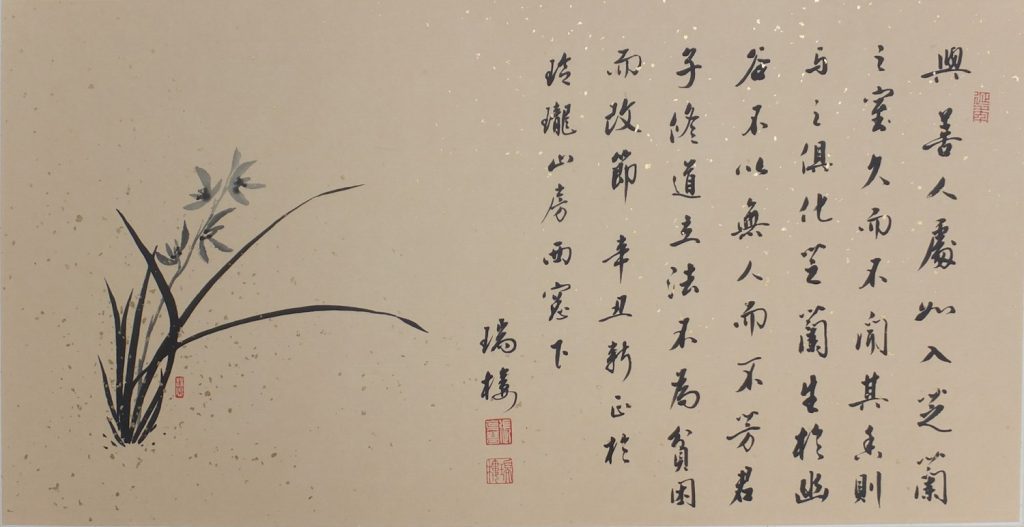 與善人處如入芝蘭
之室久而不聞其香則
与之俱化芝蘭生於幽
谷不以無人而不芳君
子修道立法不為貧困
而改節 辛丑新正於
玲瓏山房西窓下
瑞楼